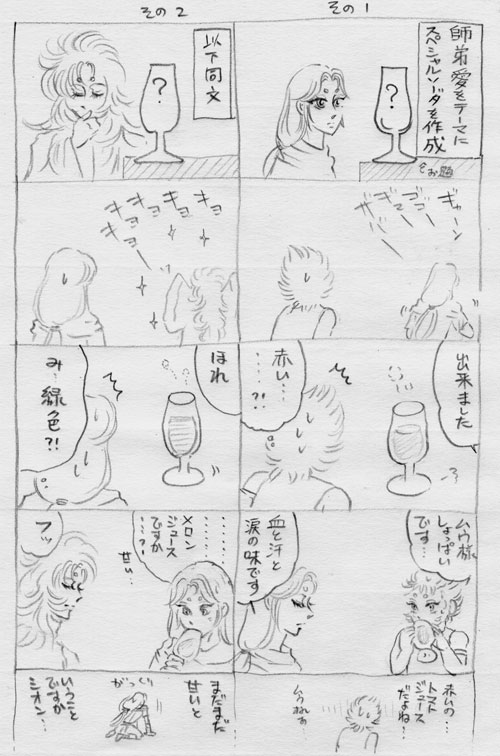 その1
師弟愛をテーマに
スペシャルソーダを作成
?
ギャーン
ゴゴー
出来ました
赤い…
…?!
ムウ様
しょっぱい
です…
血と汗と
涙の味です
赤いの…
トマト
ジュース
だよね…
その2
以下同文
?
キョ
キョ
キョ
キョー
ほれ
み…緑色?!
…………
メロン
ジュース
ですか
……?
甘い…
フッ
まだまだ
甘いと
がっくり
いうこと
ですか
シオン…